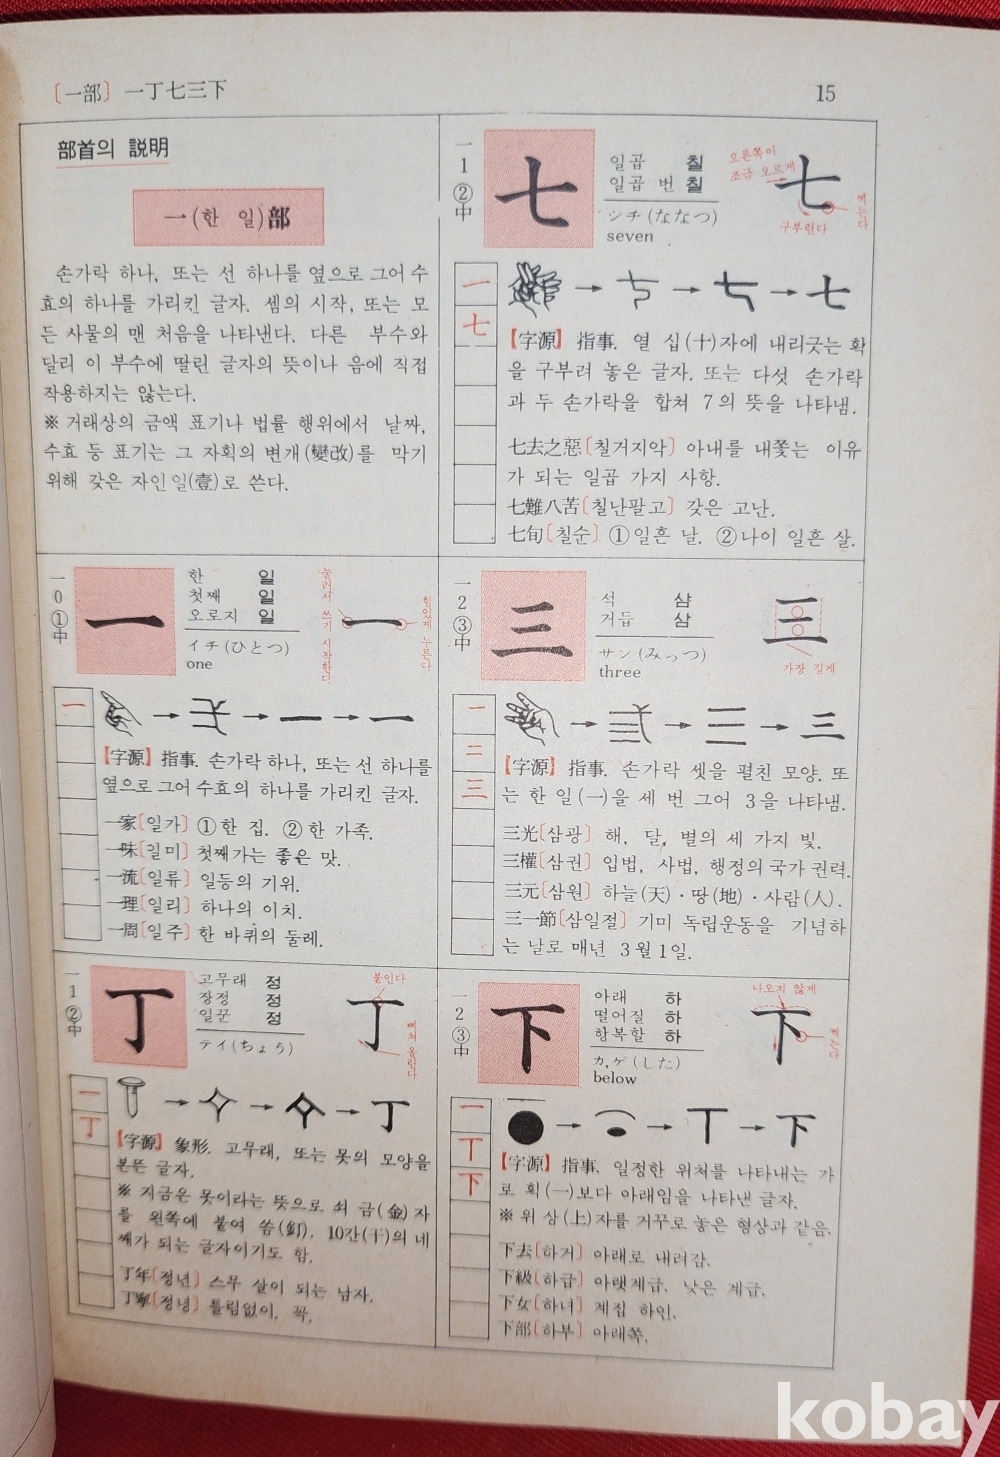 〔一部〕 一丁七三下
15
部首의 說明
一(한 일)部
손가락 하나, 또는 선 하나를 옆으로 그어 수
효의 하나를 가리킨 글자. 셈의 시작, 또는 모
든 사물의 맨 처음을 나타낸다. 다른 부수와
달리 이 부수에 딸린 글자의 뜻이나 음에 직접
작용하지는 않는다.
※ 거래상의 금액 표기나 법률 행위에서 날짜,
수효 등 표기는 그 자획의 변개(變改)를 막기
위해 갖은 자인 일(壹)로 쓴다.
一
0
①
中
一
한 일
첫째 일
오로지 일
イチ(ひとつ)
one
눌러서 쓰기 시작한다
一
힘있게 누른다
一
一 一
【字源】 指事. 손가락 하나, 또는 선 하나를
옆으로 그어 수효의 하나를 가리킨 글자.
一家〔일가〕 ①한 집. ②한 가족.
一味〔일미〕 첫째가는 좋은 맛.
一流〔일류〕 일등의 기위.
一理〔일리〕 하나의 이치.
一周〔일주〕 한 바퀴의 둘레.
一
1
②
中
丁
고무래 정
장정 정
일꾼 정
テイ(ちょう)
붙인다
丁
삐쳐 올린다
一
丁
丁
【字源】 象形. 고무래, 또는 못의 모양을
본뜬 글자.
※ 지금은 못이라는 뜻으로 쇠 금(金)자
를 왼쪽에 붙여 씀(釘). 10간(干)의 네
째가 되는 글자이기도 함.
丁年〔정년〕 스무 살이 되는 남자.
丁寧〔정녕〕 틀림없이, 꼭.
一
1
②
中
七
일곱 칠
일곱 번 칠
シチ(ななつ)
seven
오른쪽이
조금 오르게
七
찍는다
구부린다
一
七
七
【字源】 指事. 열 십(十)자에 내리긋는 획
을 구부려 놓은 글자. 또는 다섯 손가락
과 두 손가락을 합쳐 7의 뜻을 나타냄.
七去之惡〔칠거지악〕 아내를 내쫓는 이유
가 되는 일곱 가지 사항.
七難八苦〔칠난팔고〕 갖은 고난.
七旬〔칠순〕 ①일흔 날. ②나이 일흔 살.
一
2
③
中
三
석 삼
거듭 삼
サン(みっつ)
three
三
가장 길게
一
二
三
三 三
【字源】 指事. 손가락 셋을 펼친 모양. 또
는 한 일(一)을 세 번 그어 3을 나타냄.
三光〔삼광〕 해, 달, 별의 세 가지 빛.
三權〔삼권〕 입법, 사법, 행정의 국가 권력.
三元〔삼원〕 하늘(天)·땅(地)·사람(人).
三一節〔삼일절〕 기미 독립운동을 기념하
는 날로 매년 3월 1일.
一
2
③
中
下
아래 하
떨어질 하
항복할 하
カ, ゲ(した)
below
나오지 않게
下
찍는다
一
丅
下
丅 下
【字源】 指事. 일정한 위쳐를 나타내는 가
로 획(一)보다 아래임을 나타낸 글자.
※ 위 상(上)자를 거꾸로 놓은 형상과 같음.
下去〔하거〕 아래로 내려감.
下級〔하급〕 아랫계급. 낮은 계급.
下女〔하녀〕 계집 하인.
下部〔하부〕 아래쪽.
kobay